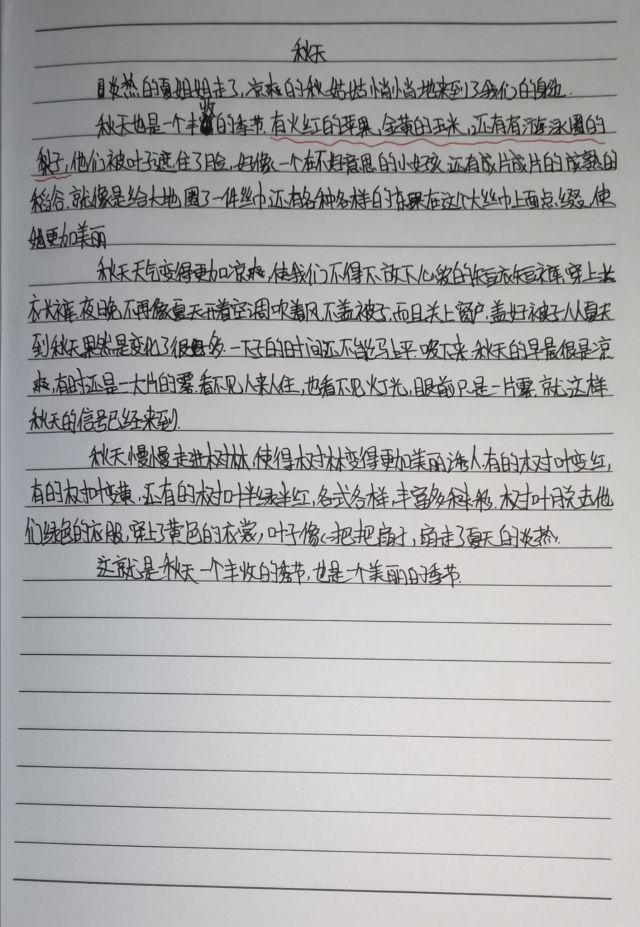 秋天
炎热的夏姐姐走了,凉爽的秋姑姑悄悄地来到了我们的身边.
秋天也是一个丰收的季节.有火红的苹果、金黄的玉米,还有有
梨子,他们被叶子遮住了脸,好像一个不好意思的小女孩.还有成片成片的成熟的
稻谷.就像是给大地围了一件丝巾,还有各种各样的水果在这个大丝巾上面点缀,使
她更加美丽
秋天天气变得更加凉爽,使我们不得不放下心爱的短衣短裤,穿上长
衣长裤,夜晚不再像夏天开着空调吹着风,不盖被子,而且关上窗户,盖好被子从夏天
到秋天果然是变化了很多.一下子的时间还不能马上平下来.秋天的早晨很是凉
爽,有时还是一大片的雾.看不见人来人往,也看不见灯光,眼前只是一片雾.就这样
秋天的信号已经来到.
秋天慢慢走进树林.使得树林变得更加美丽诱人.有的树叶变红,
有的树叶变黄,还有的树叶半绿半红,各式各样,丰富多彩,树叶脱去他
们绿色的衣服,穿上了黄色的衣裳,叶子像一把把扇子,扇走了夏天的炎热.
这就是秋天一个丰收的季节,也是一个美丽的季节.